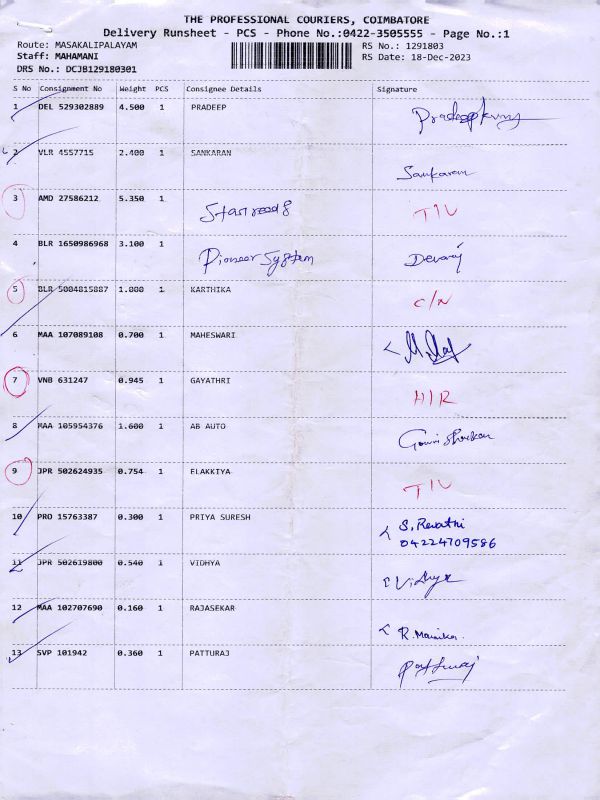 THE PROFESSIONAL COURIERS, COIMBATORE
Delivery Runsheet - PCS - Phone No.:0422-3505555 - Page No.:1
Route: MASAKALIPALAYAM RS No.: 1291803
Staff: MAHAMANI RS Date: 18-Dec-2023
DRS No.: DCJB129180301
S No Consignment No Weight PCS Consignee Details Signature
1 DEL 529302889 4.500 1 PRADEEP
2 VLR 4557715 2.400 1 SANKARAN Sankaran
3 AMD 27586212 5.350 1 T/L
4 BLR 1650986968 3.100 1 Pioneer System Devaraj
5 BLR 5004815887 1.000 1 KARTHIKA C/N
6 MAA 107089108 0.700 1 MAHESWARI
7 VNB 631247 0.945 1 GAYATHRI H/R
8 MAA 105954376 1.600 1 AB AUTO
9 JPR 502624935 0.754 1 ELAKKIYA T/L
10 PRO 15763387 0.300 1 PRIYA SURESH S. Revathi
04224709586
11 JPR 502619800 0.540 1 VIDHYA Vidhya
12 MAA 102707690 0.160 1 RAJASEKAR
13 SVP 101942 0.360 1 PATTURAJ Patturaj